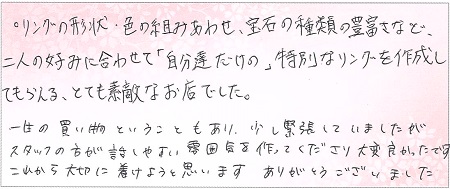 ○リングの形状・色の組みあわせ、宝石の種類の豊富さなど、
二人の好みに合わせて「自分達だけの」特別なリングを作成し
てもらえる、とても素敵なお店でした。
一生の買い物ということもあり、少し緊張していましたが
スタッフの方が話しやすい雰囲気を作ってくださり大変良かったです
これから大切に着けようと思います ありがとうございました